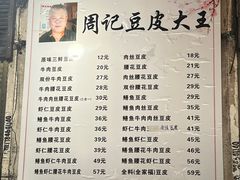 周记豆皮大王
原味三鲜豆皮 12元 肉丝豆皮 18元
牛肉豆皮 20元 腰花豆皮 21元
双份牛肉豆皮 27元 肉丝腰花豆皮 27元
牛肉腰花豆皮 29元 双份腰花豆皮 29元
牛肉肉丝腰花豆皮 35元 虾仁腰花豆皮 38元
虾仁豆皮 29元 鳝鱼豆皮 29元
鳝鱼牛肉豆皮 37元 鳝鱼肉丝豆皮 35元
虾仁牛肉豆皮 36元 虾仁
鳝鱼腰花豆皮 39元 鳝鱼虾仁豆皮 47元
鳝鱼腰花牛肉豆皮 45元 鳝鱼腰花虾仁豆皮 56元
鳝鱼虾仁牛肉豆皮 49元 鳝鱼腰花豆皮 45元
虾仁牛肉腰花豆皮 57元 全料(全家福)豆皮 59元